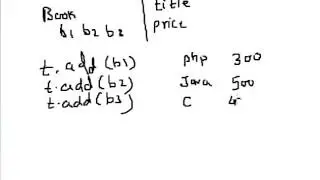 Book title
b1 b2 b3 price
t.add(b1) php 300
t.add(b2) Java 500
t.add(b3) C 4